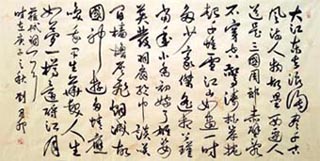 大江东去浪淘尽千古
风流人物故垒西边人
道是三國周郎赤壁乱
石穿空惊涛拍岸卷
起千堆雪江山如画一时
多少豪傑遥想公瑾
當年小喬初嫁了雄姿
英發羽扇纶巾談笑
间檣橹灰飛烟滅故
國神遊多情應
笑我早生華髮人生
如夢一樽還酹江月
蘇軾詞一首
時在庚子之秋 刘